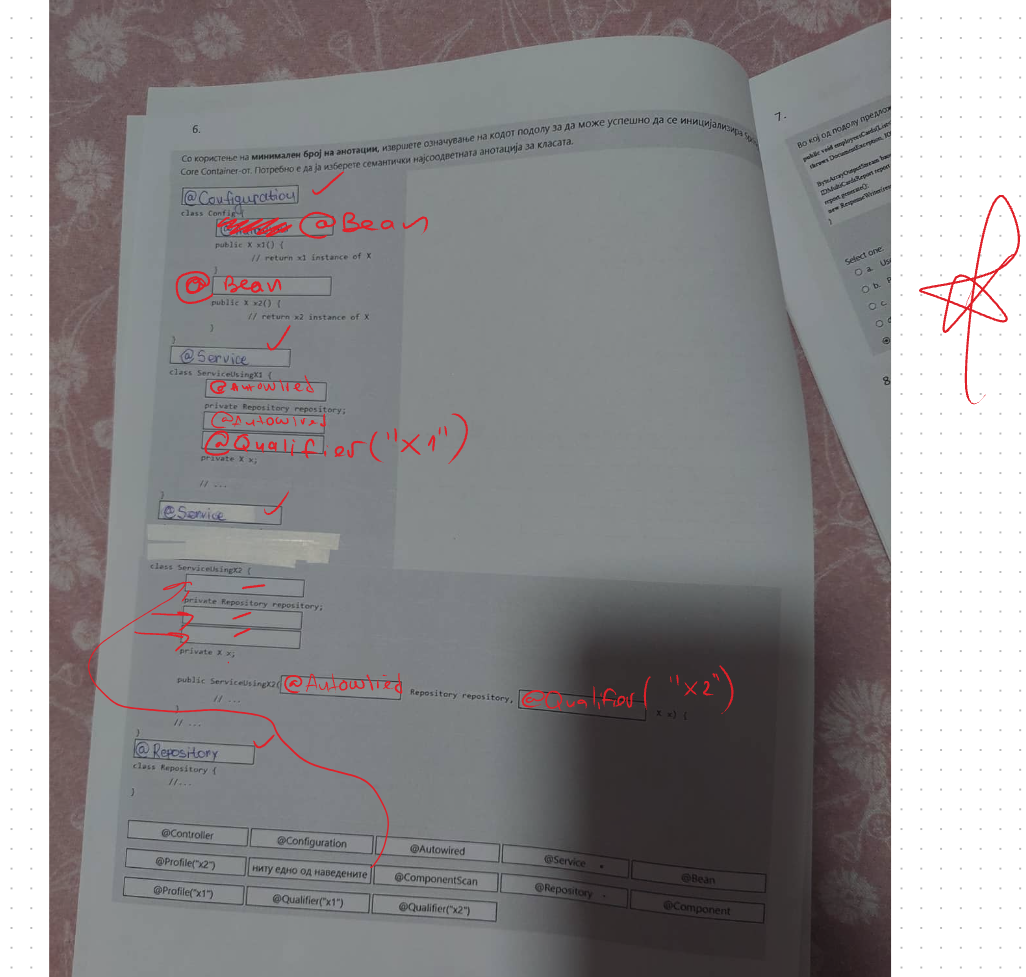 6.
Со користење на минимален број на анотации, извршете означување на кодот подолу за да може успешно да се иницијализира
Core Container-от. Потребно е да ја изберете семантички најсоодветната анотација за класата.
@Configuration
class Config{
@Bean
public X x1() {
// return x1 instance of X
}
@Bean
public X x2() {
// return x2 instance of X
}
}
@Service
class ServiceUsingX1 {
@Autowlied
private Repository repository;
@Autowired
@Qualifier("X1")
private X x;
// ...
}
@Service
class ServiceUsingX2 {
—
private Repository repository;
—
—
private X x;
public ServiceUsingX2( @Autowlied Repository repository, @Qualifier("X2") X x) {
// ...
}
// ...
}
@Repository
class Repository {
//...
}
@Controller @Configuration @Autowired @Service @Bean
@Profile("x2") ниту едно од наведените @ComponentScan @Repository @Component
@Profile("x1") @Qualifier("x1") @Qualifier("x2")
7.
Во кој од подолу
public void
throws DocumentException,
report
report.generate();
new
}
Select one:
a.
b.
c
8